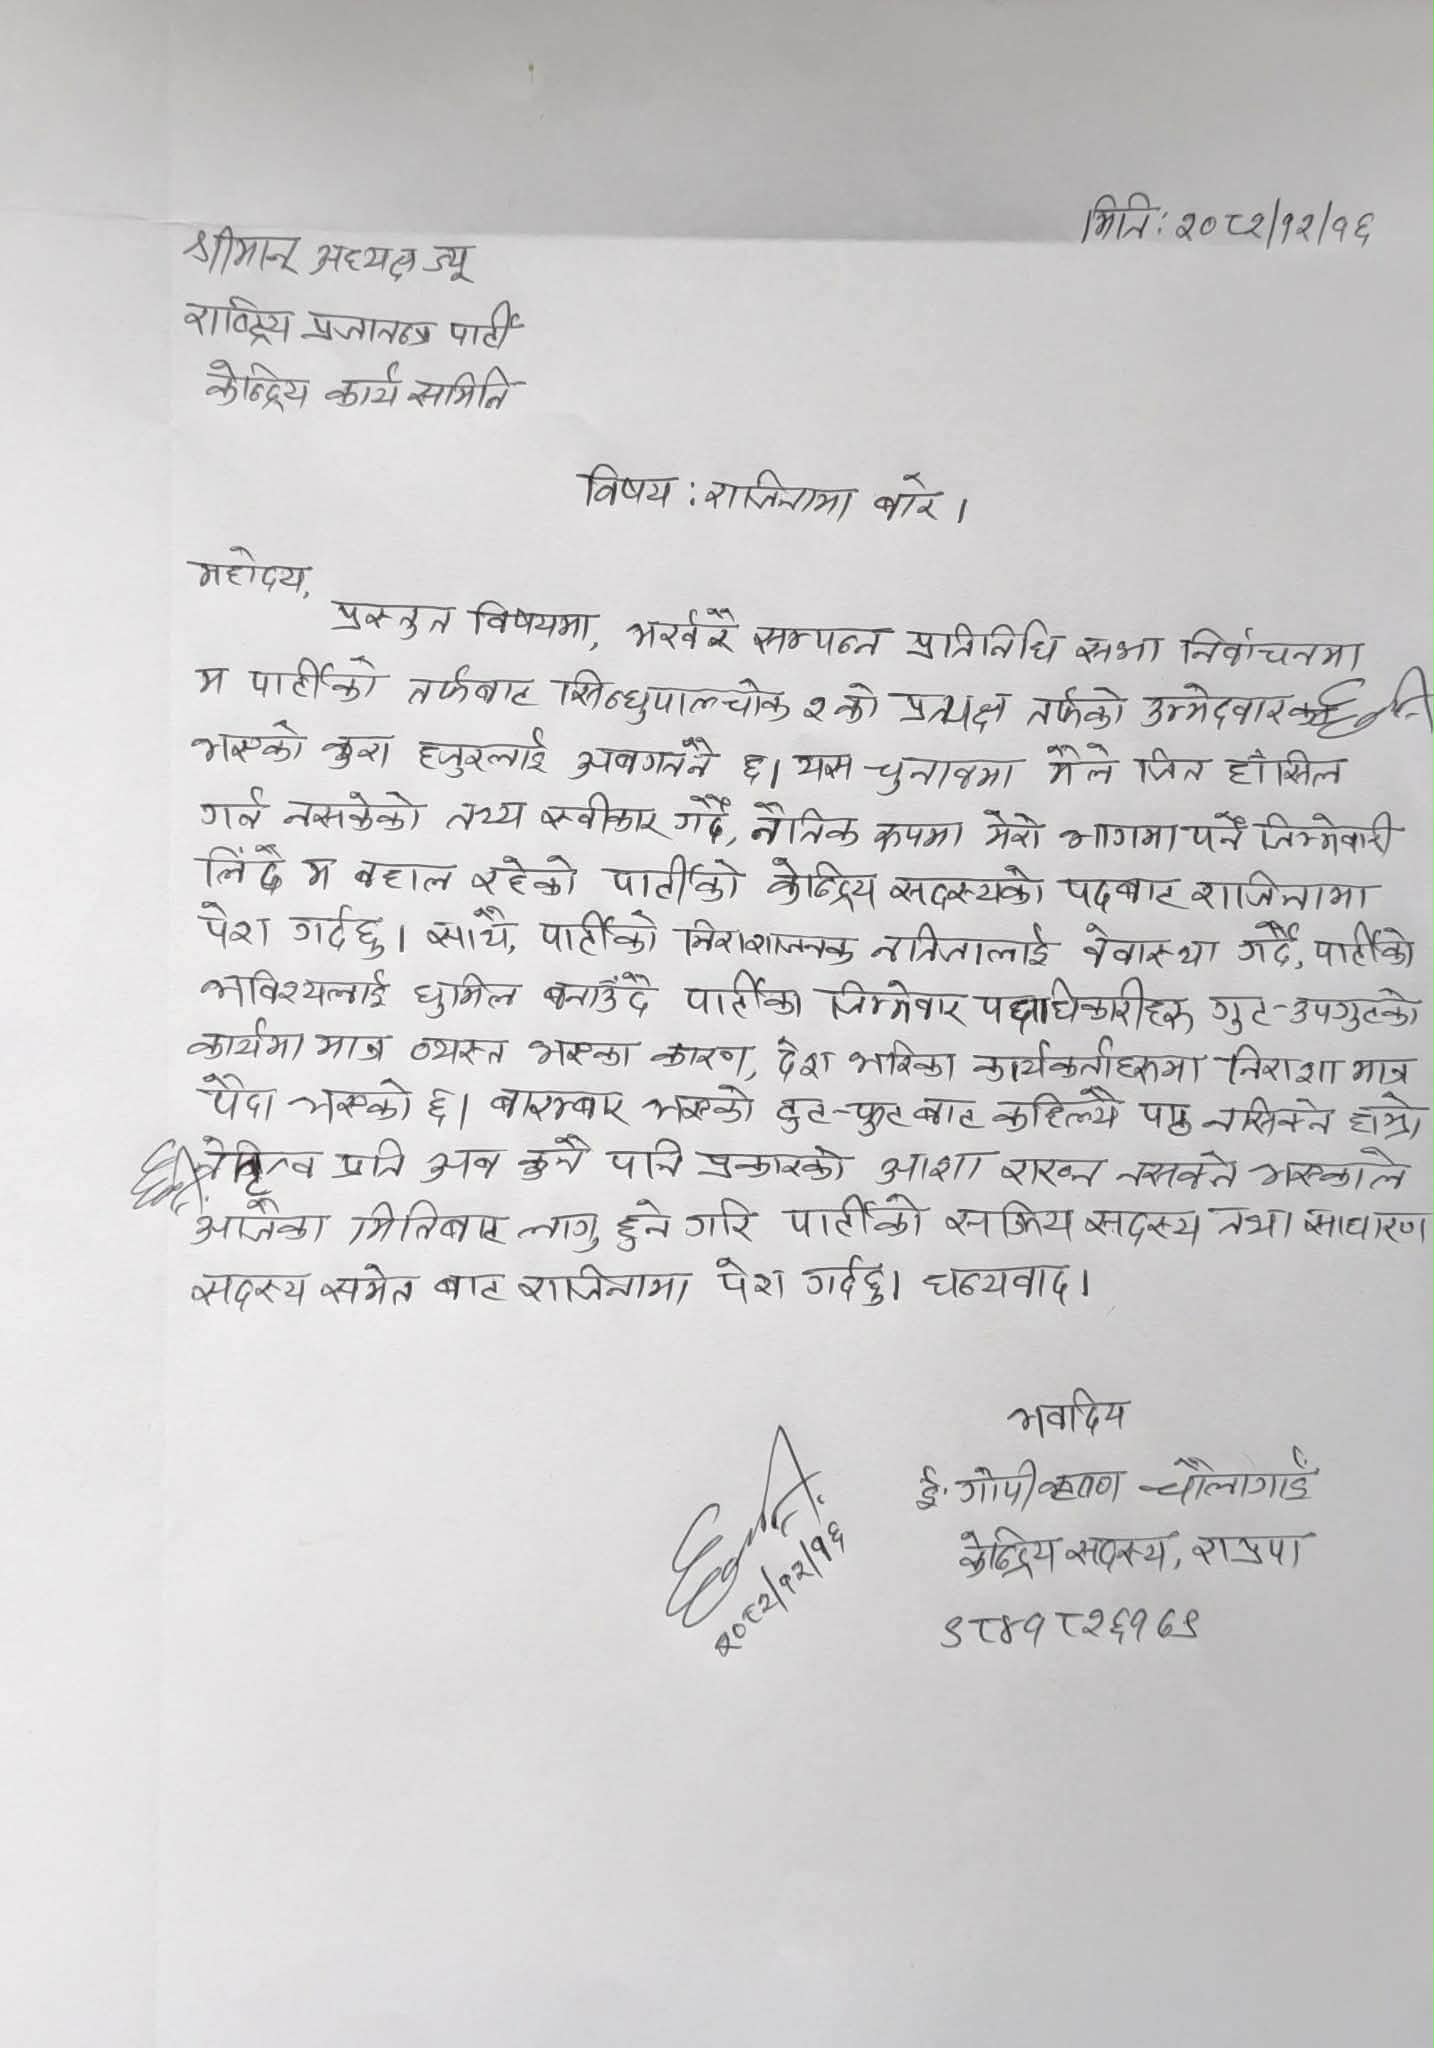 मिति: २०८२/१२/१६
श्रीमान् अध्यक्ष ज्यू
राष्ट्रिय प्रजातन्त्र पार्टी
केन्द्रिय कार्य समिति
विषय : राजिनामा बारे ।
महोदय,
प्रस्तुत विषयमा, भर्खरै सम्पन्न प्रतिनिधि सभा निर्वाचनमा
म पार्टीको तर्फबाट सिन्धुपाल्चोक २को प्रत्यक्ष तर्फको उम्मेदवार
भएको कुरा हजुरलाई अवगतनै छ। यस चुनावमा मैले जित हाँसिल
गर्न नसकेको तथ्य स्वीकार गर्दै, नैतिक रुपमा मेरो भागमा पर्ने जिम्मेवारी
लिँदै म बहाल रहेको पार्टीको केन्द्रिय सदस्यको पदबाट राजिनामा
पेश गर्दछु। साथै, पार्टीको निराशाजनक नतिजालाई वेवास्था गर्दै, पार्टीको
भविश्यलाई धुमिल बनाउँदै पार्टीका जिम्मेवार पदाधिकारीहरु गुट-उपगुटको
कार्यमा मात्र व्यस्त भएका कारण, देश भरिका कार्यकर्ताहरुमा निराशा मात्र
पैदा भएको छ। बारम्बार भएको टुट-फुटबाट कहिल्यै पाठ नसिक्ने हाम्रो
नेतृत्व प्रति अब कुनै पनि प्रकारको आशा राख्न नसक्ने भएकाले
आजैका मितिबाट लागु हुने गरि पार्टीको सक्रिय सदस्य तथा साधारण
सदस्य समेत बाट राजिनामा पेश गर्दछु। धन्यवाद।
भवदिय
ई. गोपीकृष्ण चौलागाईं
केन्द्रिय सदस्य, राप्रपा
९८४१८२६१७९
२०८२/१२/१६